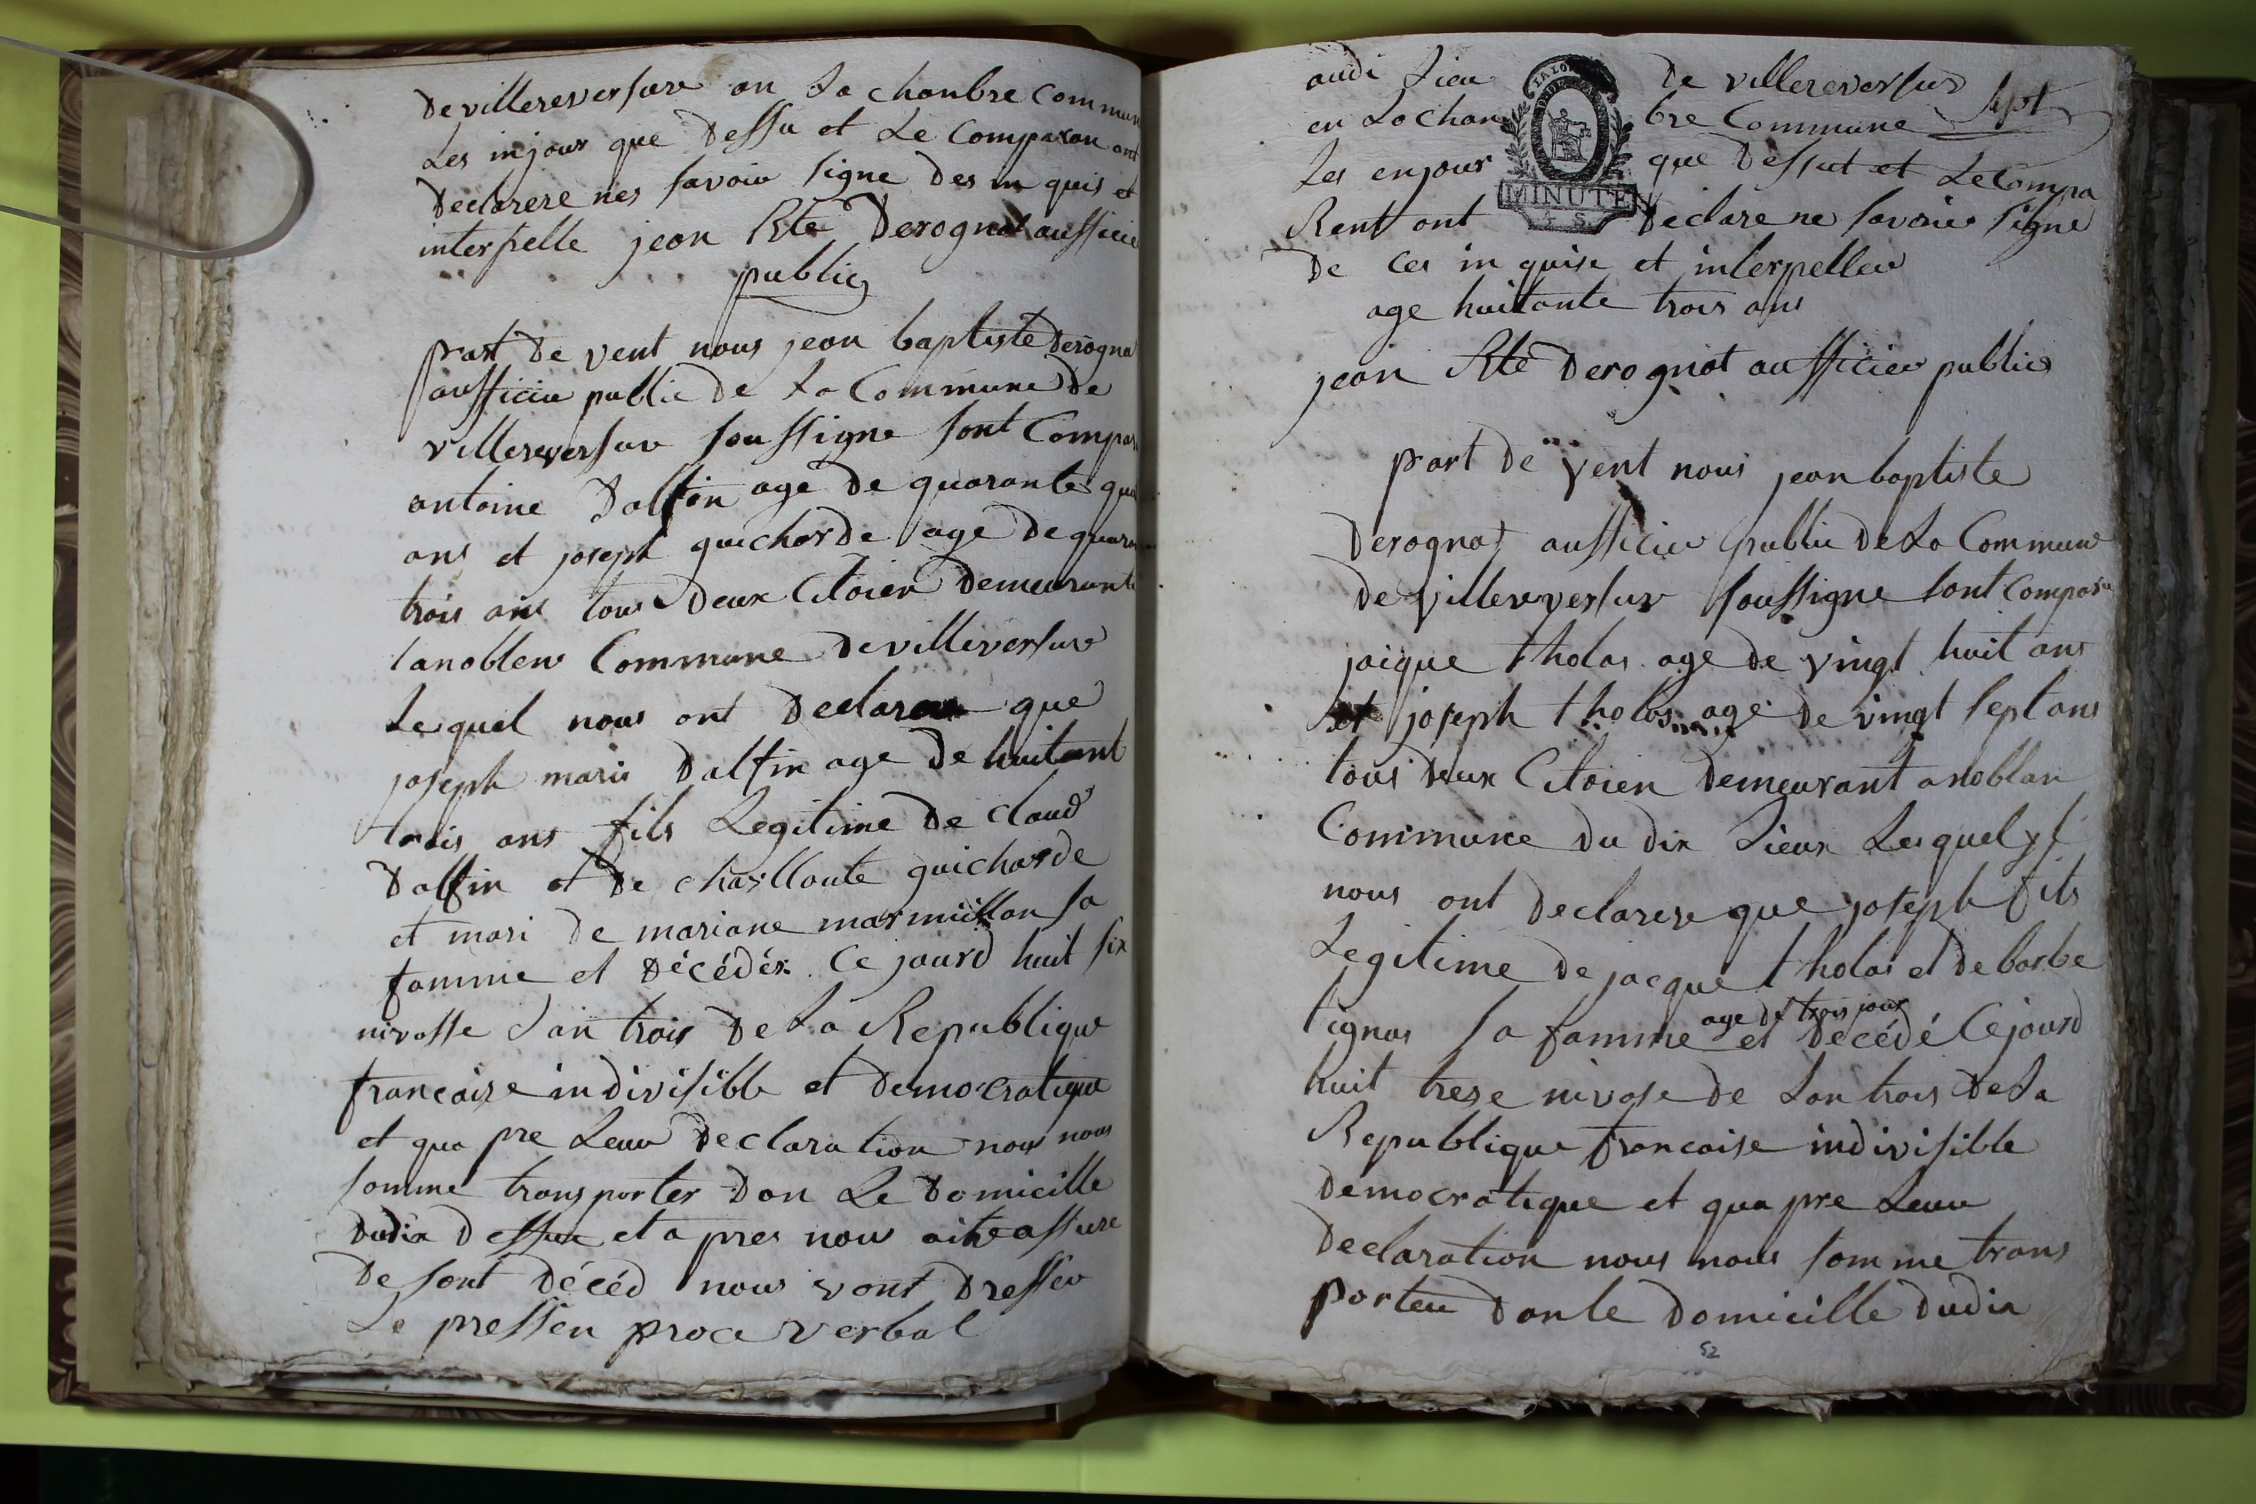 de villereversure an la chanbre commun
Les injour que dessu et Le comparon ont
declarere nes savoir signe des in quis et
interpelle jean Bte derognat aufficie
public
part de vent nous jean baptiste derogna
aufficie public de la Commune de
villereversure soussigne sont Compar
antoine dalfin age de quarante qua
ans et joseph guicharde age de quaran
trois ans tous deux Citoien demeurante
a noblen Commune de villeversure
Lequel nous ont declarere que
joseph marie dalfin age de huitant
trois ans fils Legitime de claud
dalfin et de charlloute guicharde
et mari de mariane marmillon sa
famme et décédér. Ce jourd huit six
nivosse l'an trois de La Republique
francaize indivisible et demo-cratique
et qua pre Leur declaration nous nous
somme transporter dan Le domicille
dudix dessue et a pres nous aitre assure
de sont décéd nous vont dresser
Le pressen proce verbal
audi Lieu de villereversure
en La chan bre Commune sept
Les enjour que dessut et Le Compa
MINUTE
Rent ont declare ne savoir signe
de ces in quise et interpeller
age huitante trois ans
jean Bte derognat aufficier public
part de vent nous jean baptiste
derognat aufficier public de La Commune
de villereversur soussigne sont Compar
jaique tholas age de vingt huit ans
et joseph tholas age de vingt sept ans
tous deux Citoien demeurant a noblan
Commune du dix Lieux Lesquel
nous ont declarere que joseph fils
Legitime de jacque tholas et de barbe
age de trois jour
tignas sa famme et décédé Ce jourd
huit treze nivose de Lan trois de La
Republique francaise indivisible
democratique et qua pre Leur
declaration nous nous somme trans
porter dan le domicille dudix
52